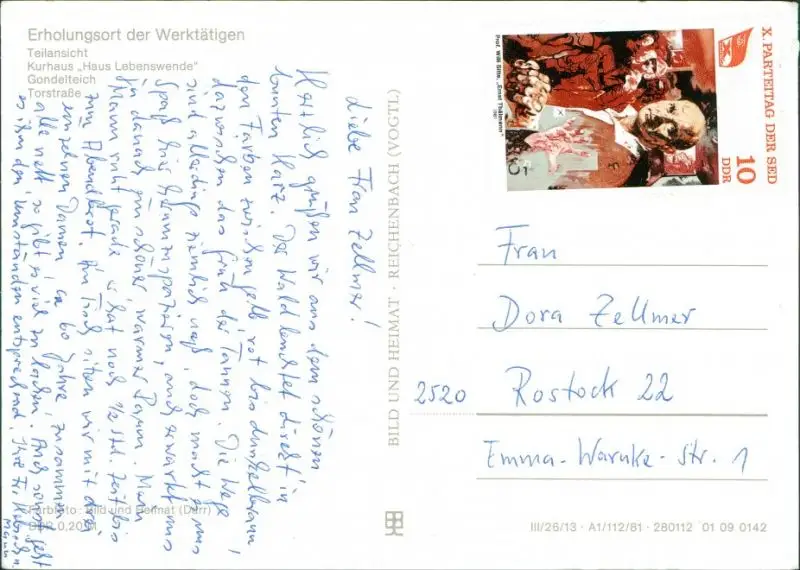 Erholungsort der Werktätigen
Teilansicht
Kurhaus „Haus Lebenswende"
Gondelteich
Torstraße
Liebe Frau Zellmer!
Herzlich grüßen wir aus dem schönen
bunten Harz. Der Wald leuchtet direkt in
den Farben zwischen gelb, rot bis dunkelbraun,
dazwischen das Grün der Tannen. Die Wege
sind allerdings ziemlich naß, doch macht es uns
Spaß hier herumzuspazieren, auch erwartet uns
ja danach ein schöner, warmer Raum. Mein
Mann ruht gerade, es hat noch ½ Std. Zeit bis
zum Abendbrot. Am Tisch sitzen wir mit drei
einzelnen Damen ca 60 Jahre, zusammen
alle nett, so gibt es viel zu lachen. Auch sonst geht
es ihm den Umständen entsprechend. Ihre
Mann
Farbfoto: Bild und Heimat (Darr)
BILD UND HEIMAT · REICHENBACH (VOGTL)
Prof. Willi Sitte, „Ernst Thälmann"
X. PARTEITAG DER SED
10
DDR
Frau
Dora Zellmer
2520 Rostock 22
Emma-Warnke-Str. 1
III/26/13 · A1/112/81 · 280112 01 09 0142